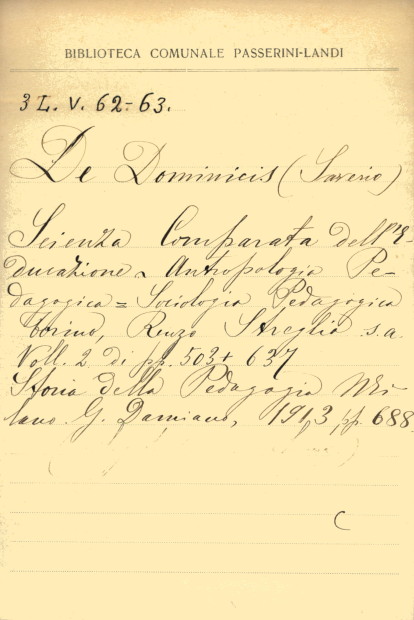 BIBLIOTECA COMUNALE PASSERINI-LANDI
3 L. V. 62-63.
De Dominicis (Saverio)
Scienza Comparata dell'E-
ducazione = Antropologia Pe-
dagogica = Sociologia Pedagogica
Torino, Renzo Streglio s.a.
Voll. 2 di pp. 503 + 637
Storia della Pedagogia Mi-
lano. G. Damiano, 1913, pp. 688.
C